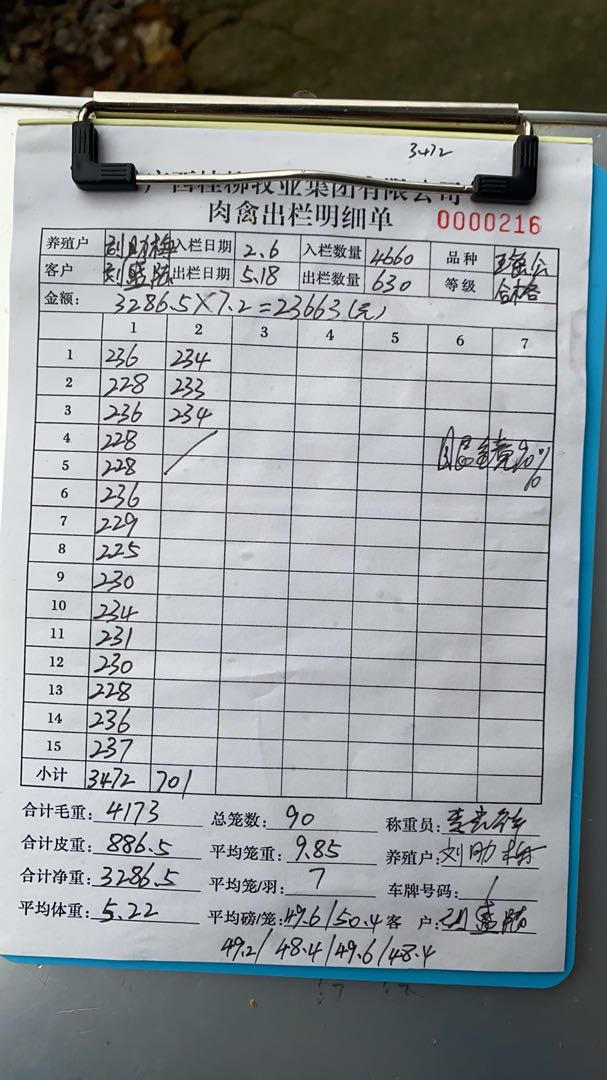 3472
广西桂柳牧业集团有限公司
肉禽出栏明细单 0000216
养殖户 刘助梅 入栏日期 2.6 入栏数量 4660 品种
客户 刘 出栏日期 5.18 出栏数量 630 等级 合格
金额: 3286.5×7.2=23663(元)
1 2 3 4 5 6 7
1 236 234
2 228 233
3 236 234
4 228
5 228 90%
6 236
7 229
8 225
9 230
10 234
11 231
12 230
13 228
14 236
15 237
小计 3472 701
合计毛重: 4173 总笼数: 90 称重员:
合计皮重: 886.5 平均笼重: 9.85 养殖户: 刘助梅
合计净重: 3286.5 平均笼/羽: 7 车牌号码: /
平均体重: 5.22 平均磅/笼: 49.6/50.4 客 户: 刘
49.2/48.4/49.6/48.4